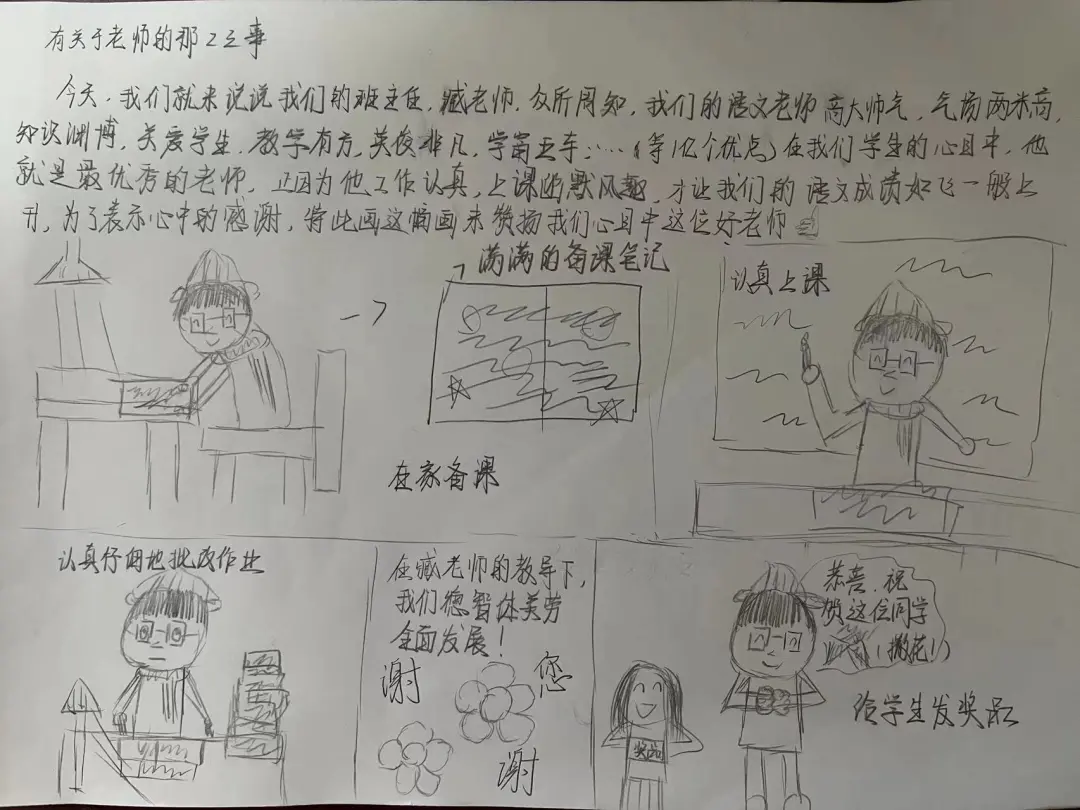 有关于老师的那些之事
今天,我们就来说说我们的班主任,臧老师,众所周知,我们的语文老师高大帅气,气场两米高,
知识渊博,关爱学生,教学有方,英俊非凡,学富五车……(等1亿个优点)在我们学生的心目中,他
就是最优秀的老师,正因为他工作认真,上课幽默风趣,才让我们的语文成绩如飞一般上
升,为了表示心中的感谢,特此画这幅画来赞扬我们心目中这位好老师
满满的备课笔记
在家备课
认真上课
认真仔细地批改作业
在臧老师的教导下,
我们德智体美劳
全面发展!
谢
您
谢
恭喜,祝
贺这位同学
(撒花!)
奖品
给学生发奖品